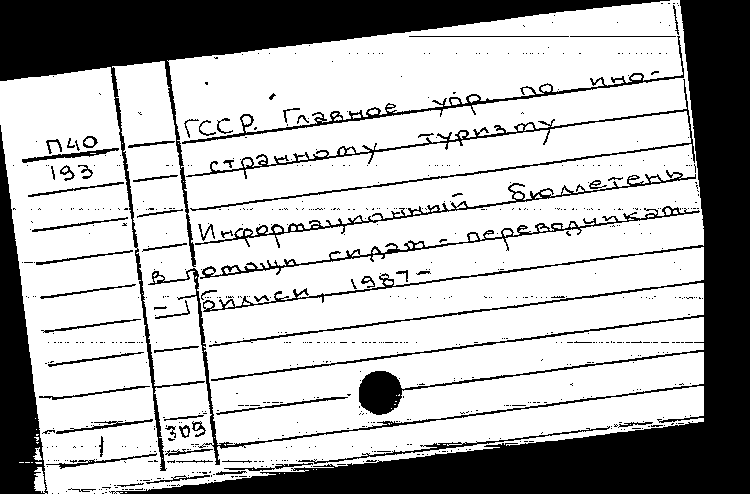 П40
193
ГССР. Главное упр. по ино-
странному туризму
Информационный бюллетень
в помощи гидам - переводчикам.
- Тбилиси, 1987-
1
309